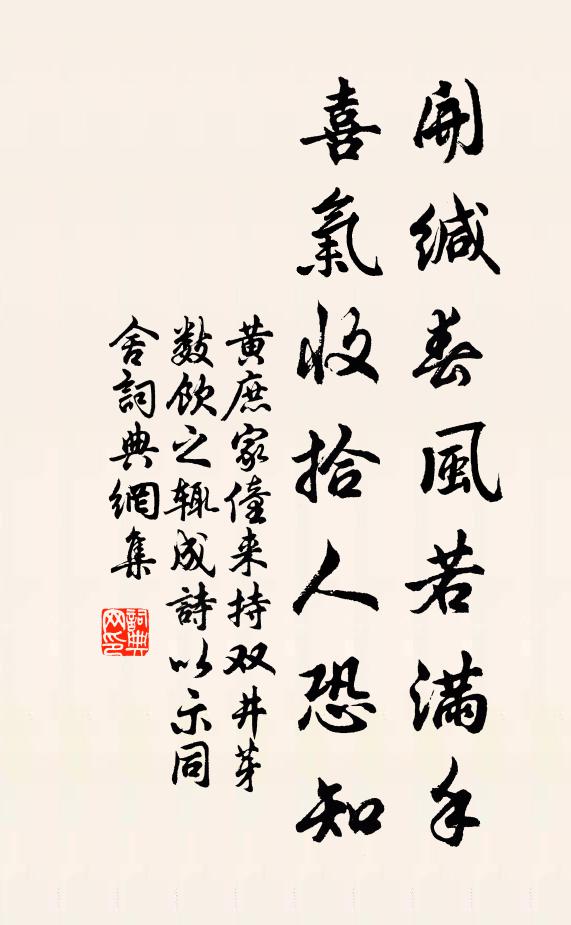 開緘春風若滿手
喜氣收拾人恐知
黄庶家僮来持双井芽
數飲之輒成詩以示同
舍詞典網集
詞典网印